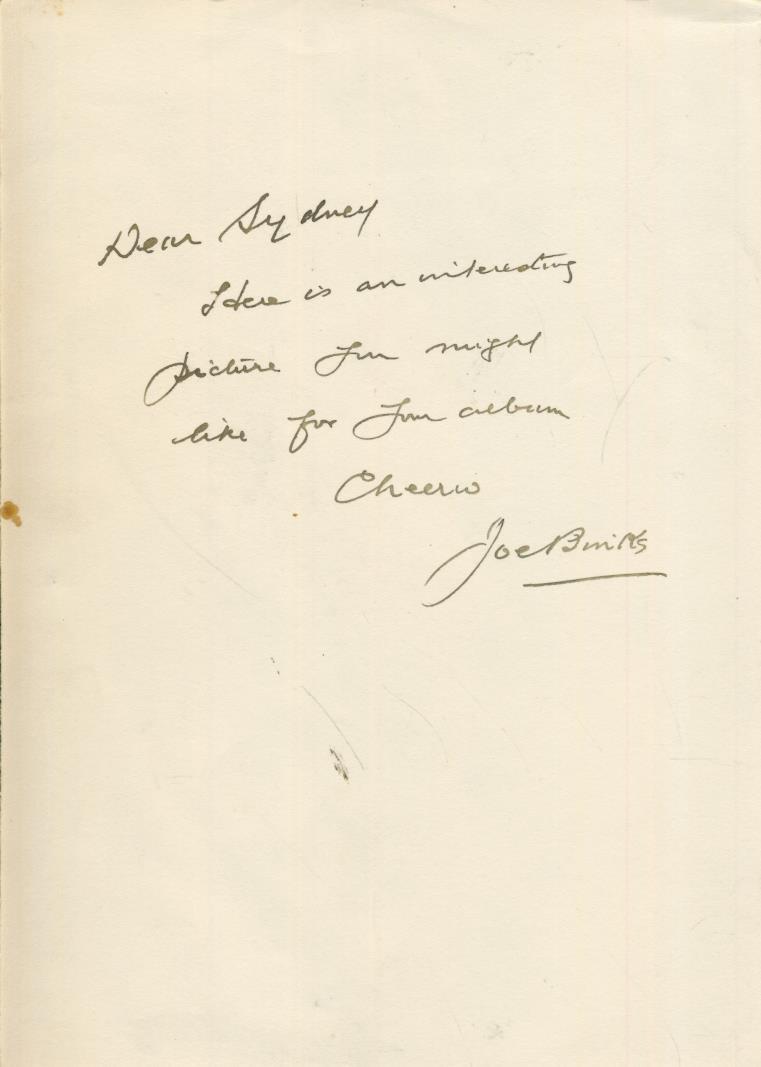 Dear Sydney
Here is an interesting
picture you might
like for your album
Cheerio
Joe Binks